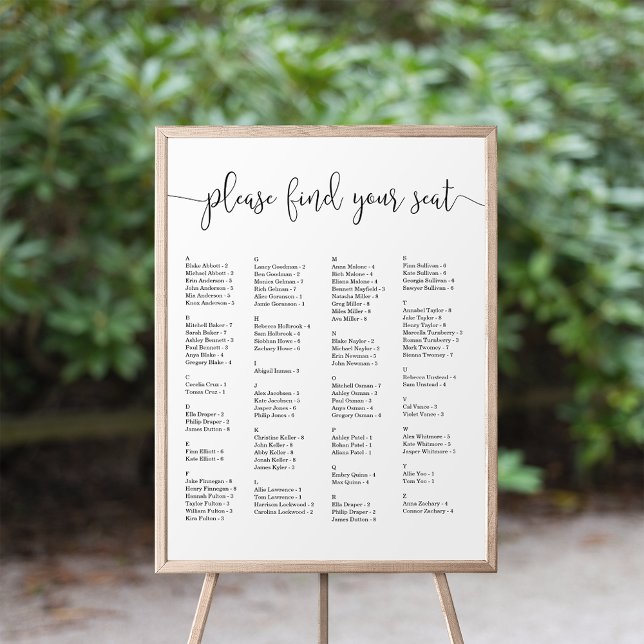 please find your seat
A
Blake Abbott - 2
Michael Abbott - 2
Erin Anderson - 5
John Anderson - 5
Mia Anderson - 5
Knox Anderson - 5
B
Mitchell Baker - 7
Sarah Baker - 7
Ashley Bennett - 3
Paul Bennett - 3
Anya Blake - 4
Gregory Blake - 4
C
Cecelia Cruz - 1
Tomas Cruz - 1
D
Ella Draper - 2
Philip Draper - 2
James Dutton - 8
E
Finn Elliott - 6
Kate Elliott - 6
F
Jake Finnegan - 8
Henry Finnegan - 8
Hannah Fulton - 3
Taylor Fulton - 3
William Fulton - 3
Kira Fulton - 3
G
Lancy Goodman - 2
Ben Goodman - 2
Monica Gelman - 7
Rich Gelman - 7
Alice Goranson - 1
Jamie Goranson - 1
H
Rebecca Holbrook - 4
Sam Holbrook - 4
Siobhan Howe - 6
Zachary Howe - 6
I
Abigail Inman - 3
J
Alex Jacobsen - 5
Kate Jacobsen - 5
Jasper Jones - 6
Philip Jones - 6
K
Christine Keller - 8
John Keller - 8
Abby Keller - 8
Jonah Keller - 8
James Kyler - 3
L
Allie Lawrence - 1
Tom Lawrence - 1
Harrison Lockwood - 2
Carolina Lockwood - 2
M
Anna Malone - 4
Rich Malone - 4
Eliana Malone - 4
Bennett Mayfield - 3
Natasha Miller - 8
Greg Miller - 8
Miles Miller - 8
Ava Miller - 8
N
Blake Naylor - 2
Michael Naylor - 2
Erin Newman - 5
John Newman - 5
O
Mitchell Osmen - 7
Ashley Osman - 2
Paul Osman - 3
Anya Osman - 4
Gregory Osman - 4
P
Ashley Patel - 1
Rohan Patel - 1
Aliana Patel - 1
Q
Embry Quinn - 4
Max Quinn - 4
R
Ella Draper - 2
Philip Draper - 2
James Dutton - 8
S
Finn Sullivan - 6
Kate Sullivan - 6
Georgia Sullivan - 6
Sawyer Sullivan - 6
T
Annabel Taylor - 8
Jake Taylor - 8
Henry Taylor - 8
Marcella Turnsberry - 3
Roman Turnsberry - 3
Mark Twomey - 7
Sienna Twomey - 7
U
Rebecca Unstead - 4
Sam Unstead - 4
V
Cal Vance - 3
Violet Vance - 3
W
Alex Whitmore - 5
Kate Whitmore - 5
Jasper Whitmore - 5
Y
Allie Yoo - 1
Tom Yoo - 1
Z
Anna Zachary - 4
Connor Zachary - 4